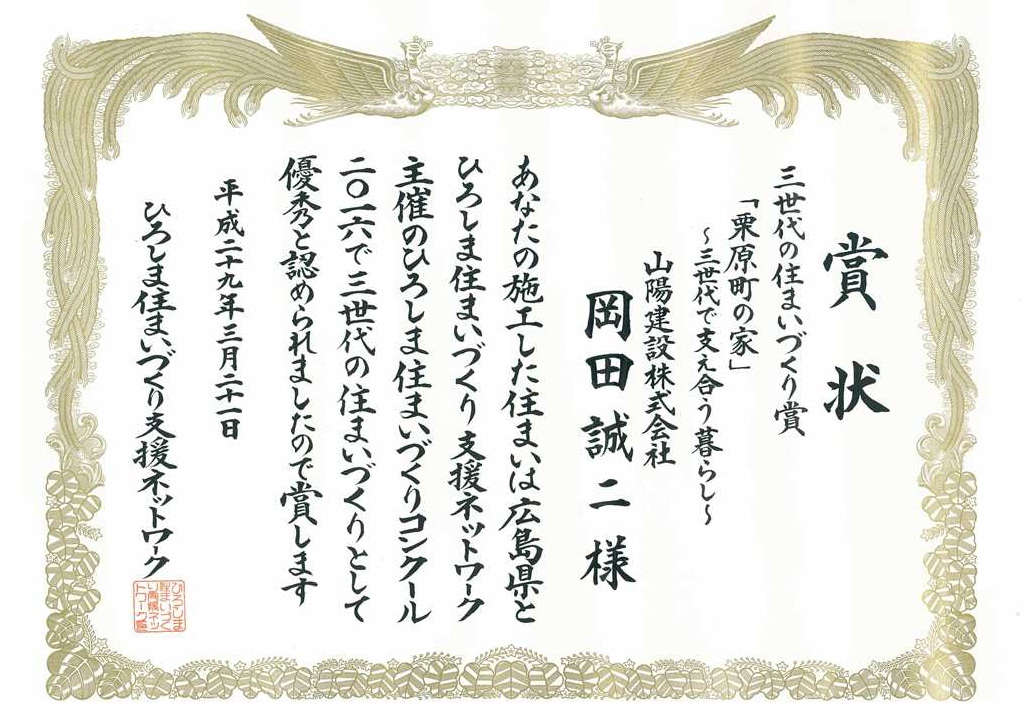 賞状
三世代の住まいづくり賞
「栗原町の家」
～三世代で支え合う暮らし～
山陽建設株式会社
岡田誠二様
あなたの施工した住まいは広島県と
ひろしま住まいづくり支援ネットワーク
主催のひろしま住まいづくりコンクール
二〇一六で三世代の住まいづくりとして
優秀と認められましたので賞します
平成二十九年三月二十一日
ひろしま住まいづくり支援ネットワーク